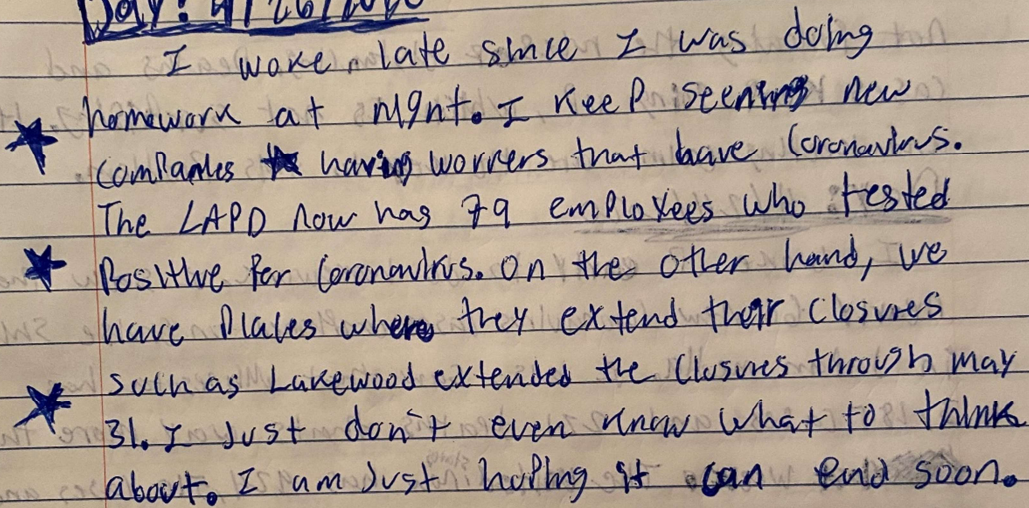 Day: 4/26/2020
I woke late since I was doing
homework at night. I keep seening new
companies having workers that have Coronavirus.
The LAPD now has 79 employees who tested
Positive for Coronavirus. On the other hand, we
have places where they extend their closures
such as Lakewood extended the closures through may
31. I Just don't even know what to think
about. I am Just hoping it can end soon.